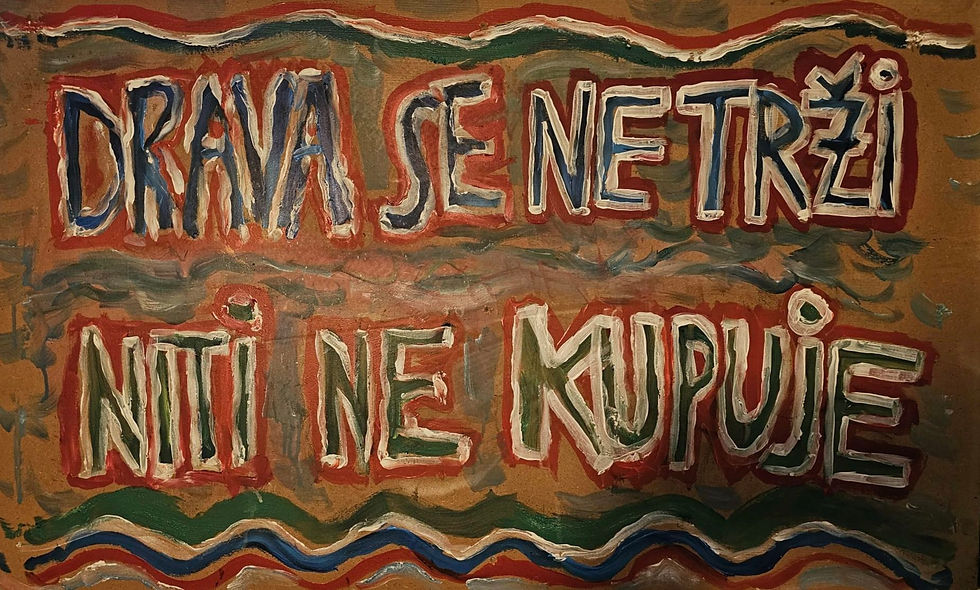 DRAVA SE NE TRŽi
NiTi NE KUPUjE